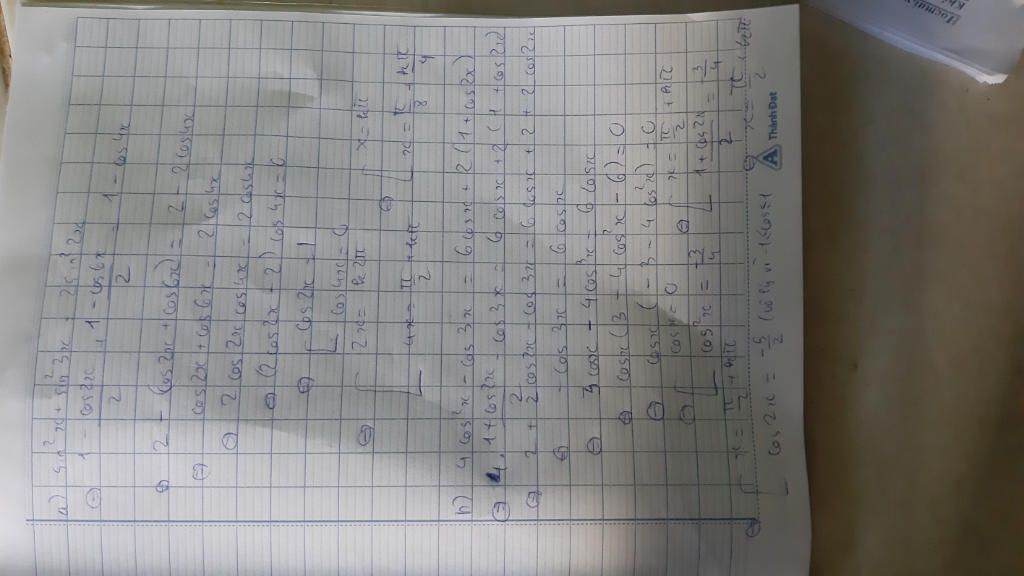 a) sin²x + sin²3x = 2 sin²2x
⇔ (1 - cos2x)/2 + (1 - cos6x)/2 = 1 - cos4x
⇔ 2 - (cos2x + cos6x) = 2 - 2cos4x
⇔ cos2x + cos6x = 2cos4x
⇔ 2 cos2x cos4x = 2cos4x
⇔ (2cos2x - 2) cos4x = 0
⇔ [ cos2x = 1
cos4x = 0
⇔ [ 2x = k2π ⇔ [ x = kπ
4x = π/2 + kπ x = π/8 + kπ/4
b) 4cos²x - cos3x = 6cosx + 2(1 + cos2x)
⇔ 4. (1 + cos2x)/2 - cos3x = 6cosx + 2(1 + cos2x)
⇔ 2 + 2cos2x - cos3x = 6cosx + 2 + 2cos2x
⇔ - cos3x = 6cosx
⇔ 3cosx - 4cos³x = 6cosx
⇔ cosx(3 - 4cos²x - 6) = 0
⇔ cosx(-3 - 4cos²x) = 0
⇔ [ cosx = 0 ⇔ [ x = π/2 + kπ
cos²x = -3/4 (1 + cos2x)/2 = -3/4
⇔ [ x = π/2 + kπ ⇔ x = π/2 + kπ
cos2x = -5/2 (vô lý vì -1≤cos≤1
Thành Đạt